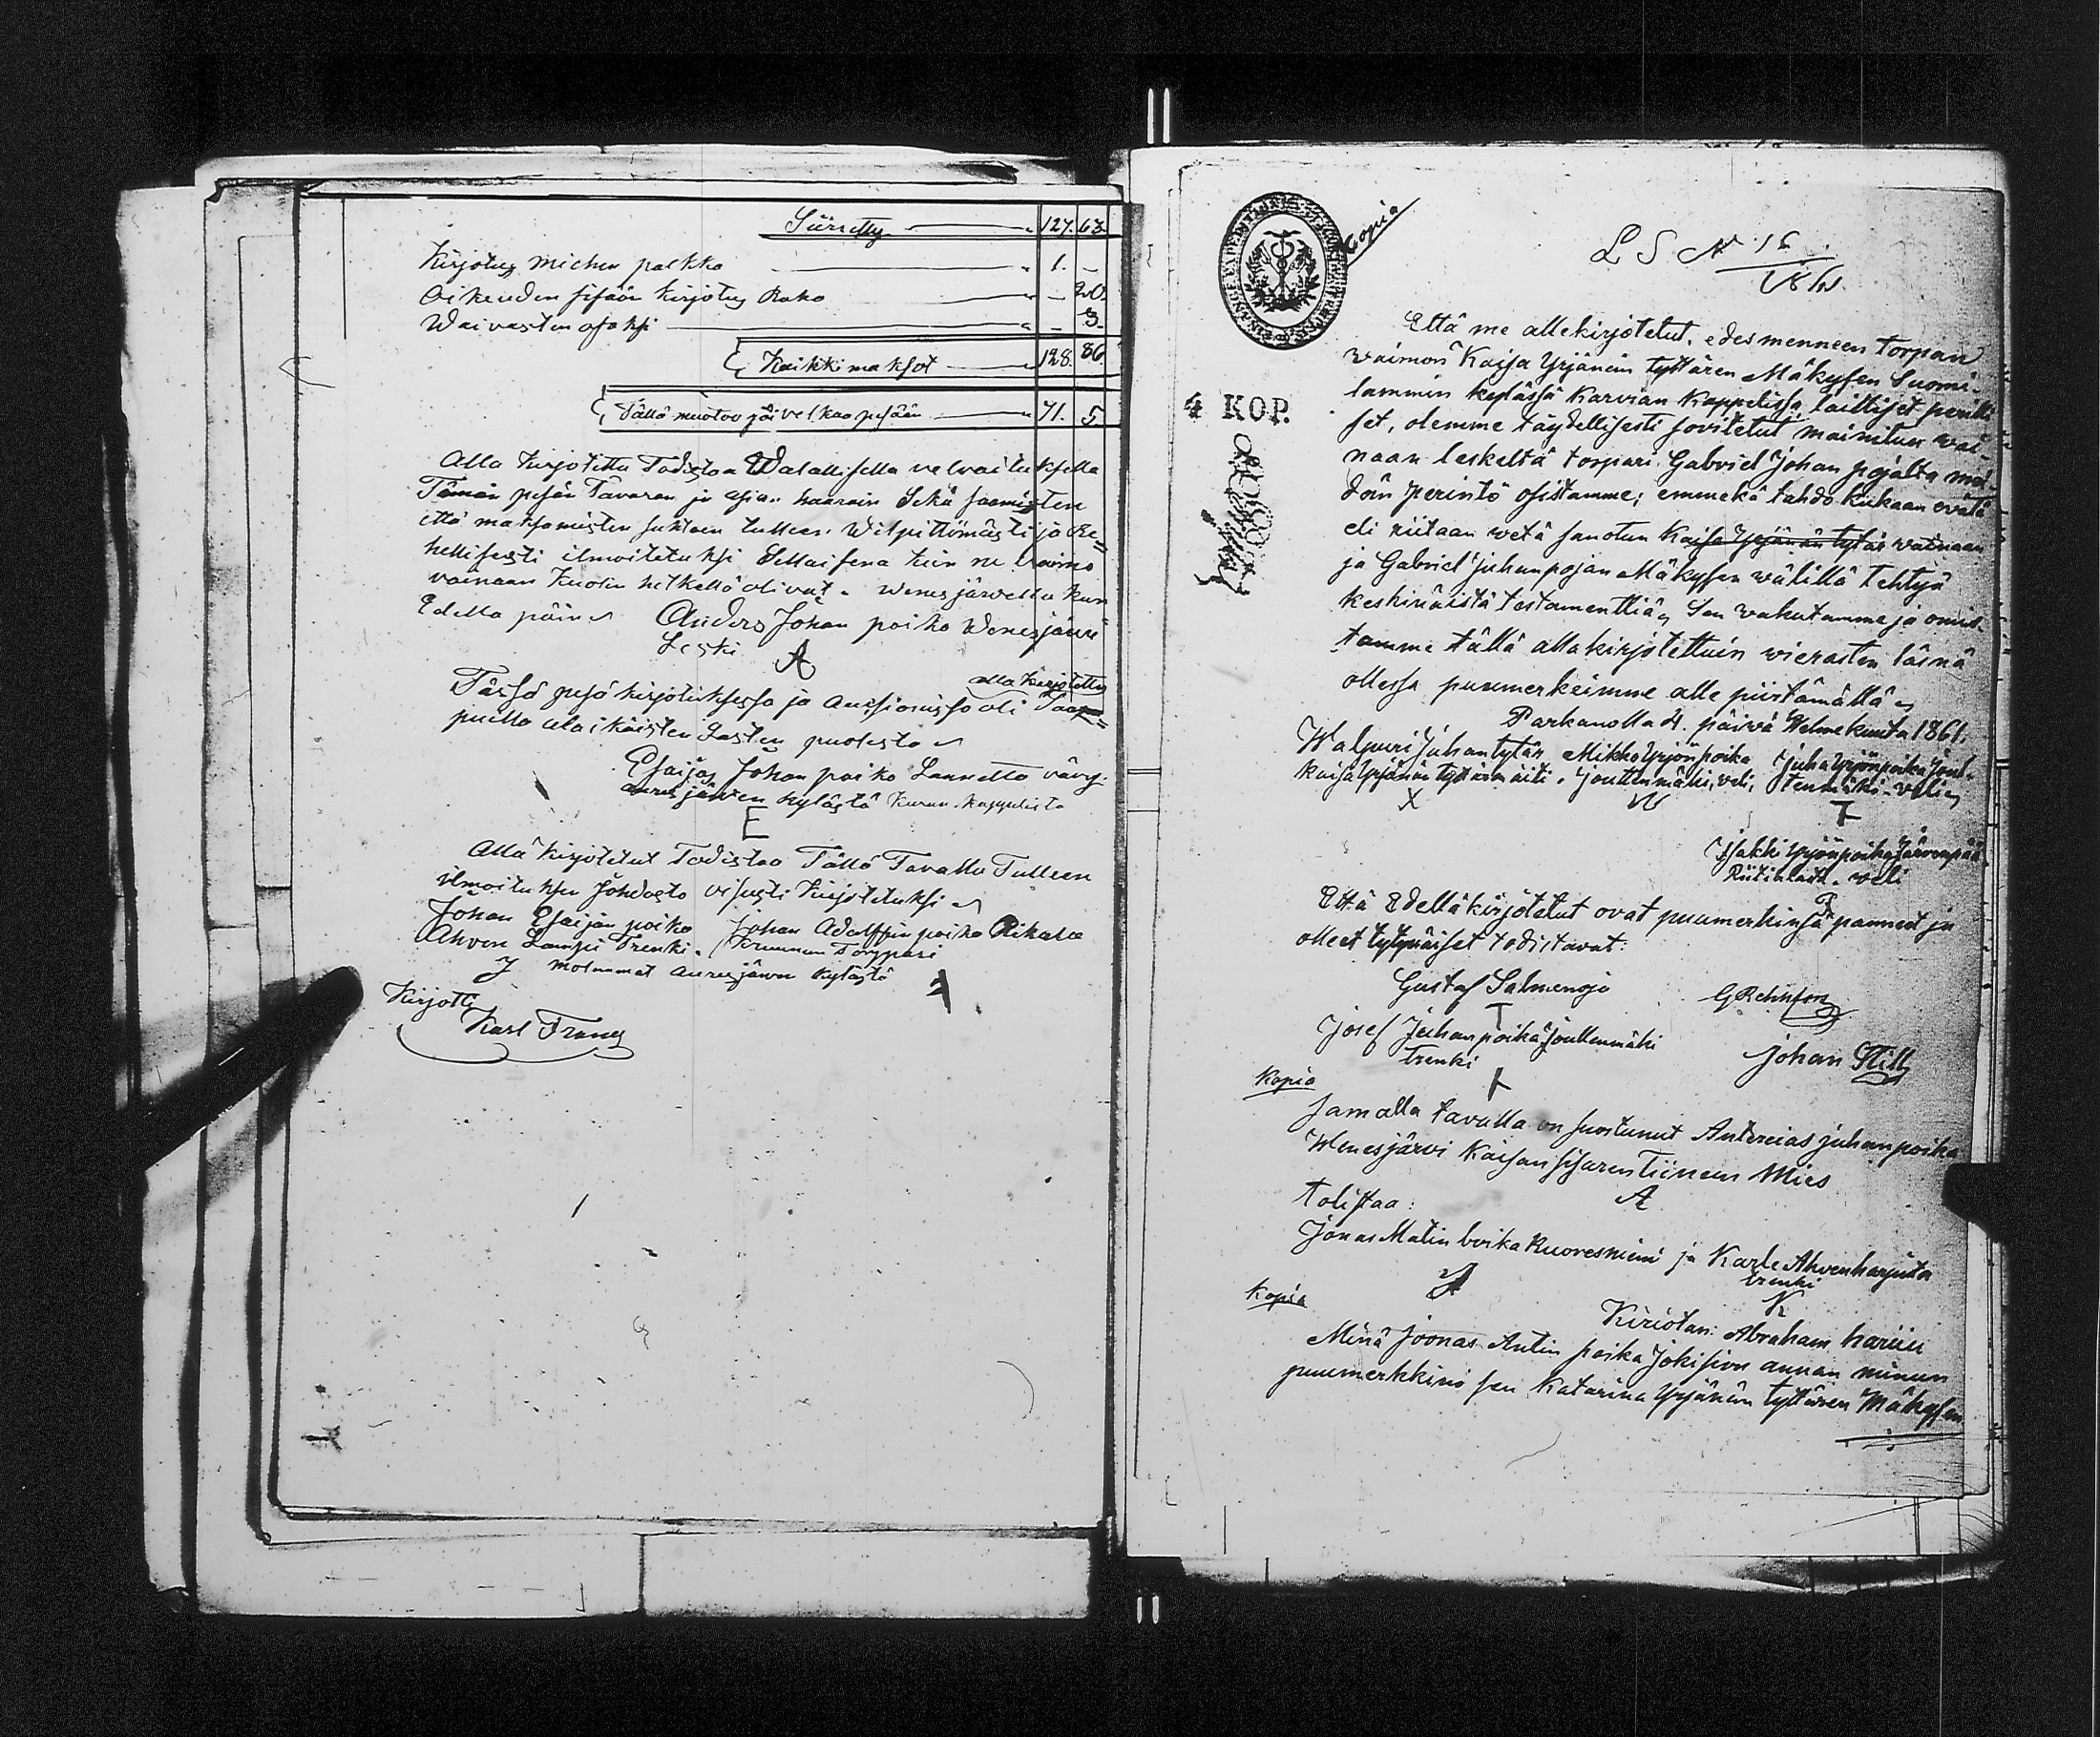 Siirretty — „ 127. 63.
Kirjotus miehen palkka — „ 1. –
Oikeuden sisään kirjotus Raha — „ – 20.
Waivasten osaksi — „ – 3.
Kaikki maksot — „ 128. 86.
Tällä muotoo jäi velkaa pesään — „ 71. 5
Alla kirjotettu Todistaa Walallisella velvoituksella
Tämän pesän Tavaran ja asian haarain Sekä saamisten
että maksamisten suhteen tulleen Wilpittömästi ja Re-
hellisesti ilmoitetuksi Sellaisena kuin ne vaimo
vainaan kuolin hetkellä olivat. Wenesjärvellä kun
Edellä päin
Anders Johan poika Wenesjärvi
Leski
A
alla kirjotettu
Tässä pesä kirjotuksessa ja auksionissa oli
puilla ala ikäisten Lasten puolesta
Esaijas Johan poika Lannetta
aurejärven kylästä Kurun Kappelista
E
Alla kirjotetut Todistaa Tällä Tavalla Tulleen
ilmoituksen Johdosta visusti kirjotetuksi
Johan Esaijan poika Johan Adolffin poika Rikala
Ahven Lampi Trenki. Kruunun Torppari
J molemmat aurejärven kylästä
Kirjotti
Karl Franz
Kopia
L S N 16
186
4 KOP.
Että me allekirjotetut, edesmenneen torpan
waimon Kaisa Yrjänän tyttären Mäkysen Suomi-
lammin kylässä Karvian Kappelissa lailliset perilli
set, olemme täydellisesti sovitetut mainitun wai-
naan leskeltä torpari Gabriel Johan pojalta mei-
dän perintö osistamme; emmekä tahdo kukaan evätä
eli riitaan wetä sanotun Kaisa Yrjänän tytär wainaan
ja Gabriel Juhanpojan Mäkysen wälillä tehtyä
keskinäistä testamenttiä, Sen wahutamme ja omis-
tamme tällä allakirjotettuin wierasten läsnä
ollessa puumerkeimme alle piirtämällä
Parkanolla 4. päivä Helmekuuta 1861.
Walpuri Juhantytär Mikko Yrjönpoika Juha Yrjönpoika Jout-
Kaisa Yrjänän tyttären äiti. Jouttenmäki, veli, tenmäki veli
X
Isakki Yrjönpoika Järvenpää
veli
Että Edelläkirjotetut ovat puumerkinsä panneet ja
olleet tytyväiset todistavat:
Gustaf Salmenoja
Josef Juhanpoika Jouttenmäki
trenki
Johan Still
Kopia
Samalla tavalla on suostunut Antreias Juhanpoika
Wenesjärvi Kaisan sisaren Tiineen Mies
tolistaa: A
Jonas Matin boika Kuoresniemi ja Karle Ahvenharjuta
trenki
K
Kiriotan: Abraham hariu
Kopia
Minä Joonas Antin poika Jokisivu annan minun
puumerkkini sen Katarina Yrjänän tyttären Mäkysen